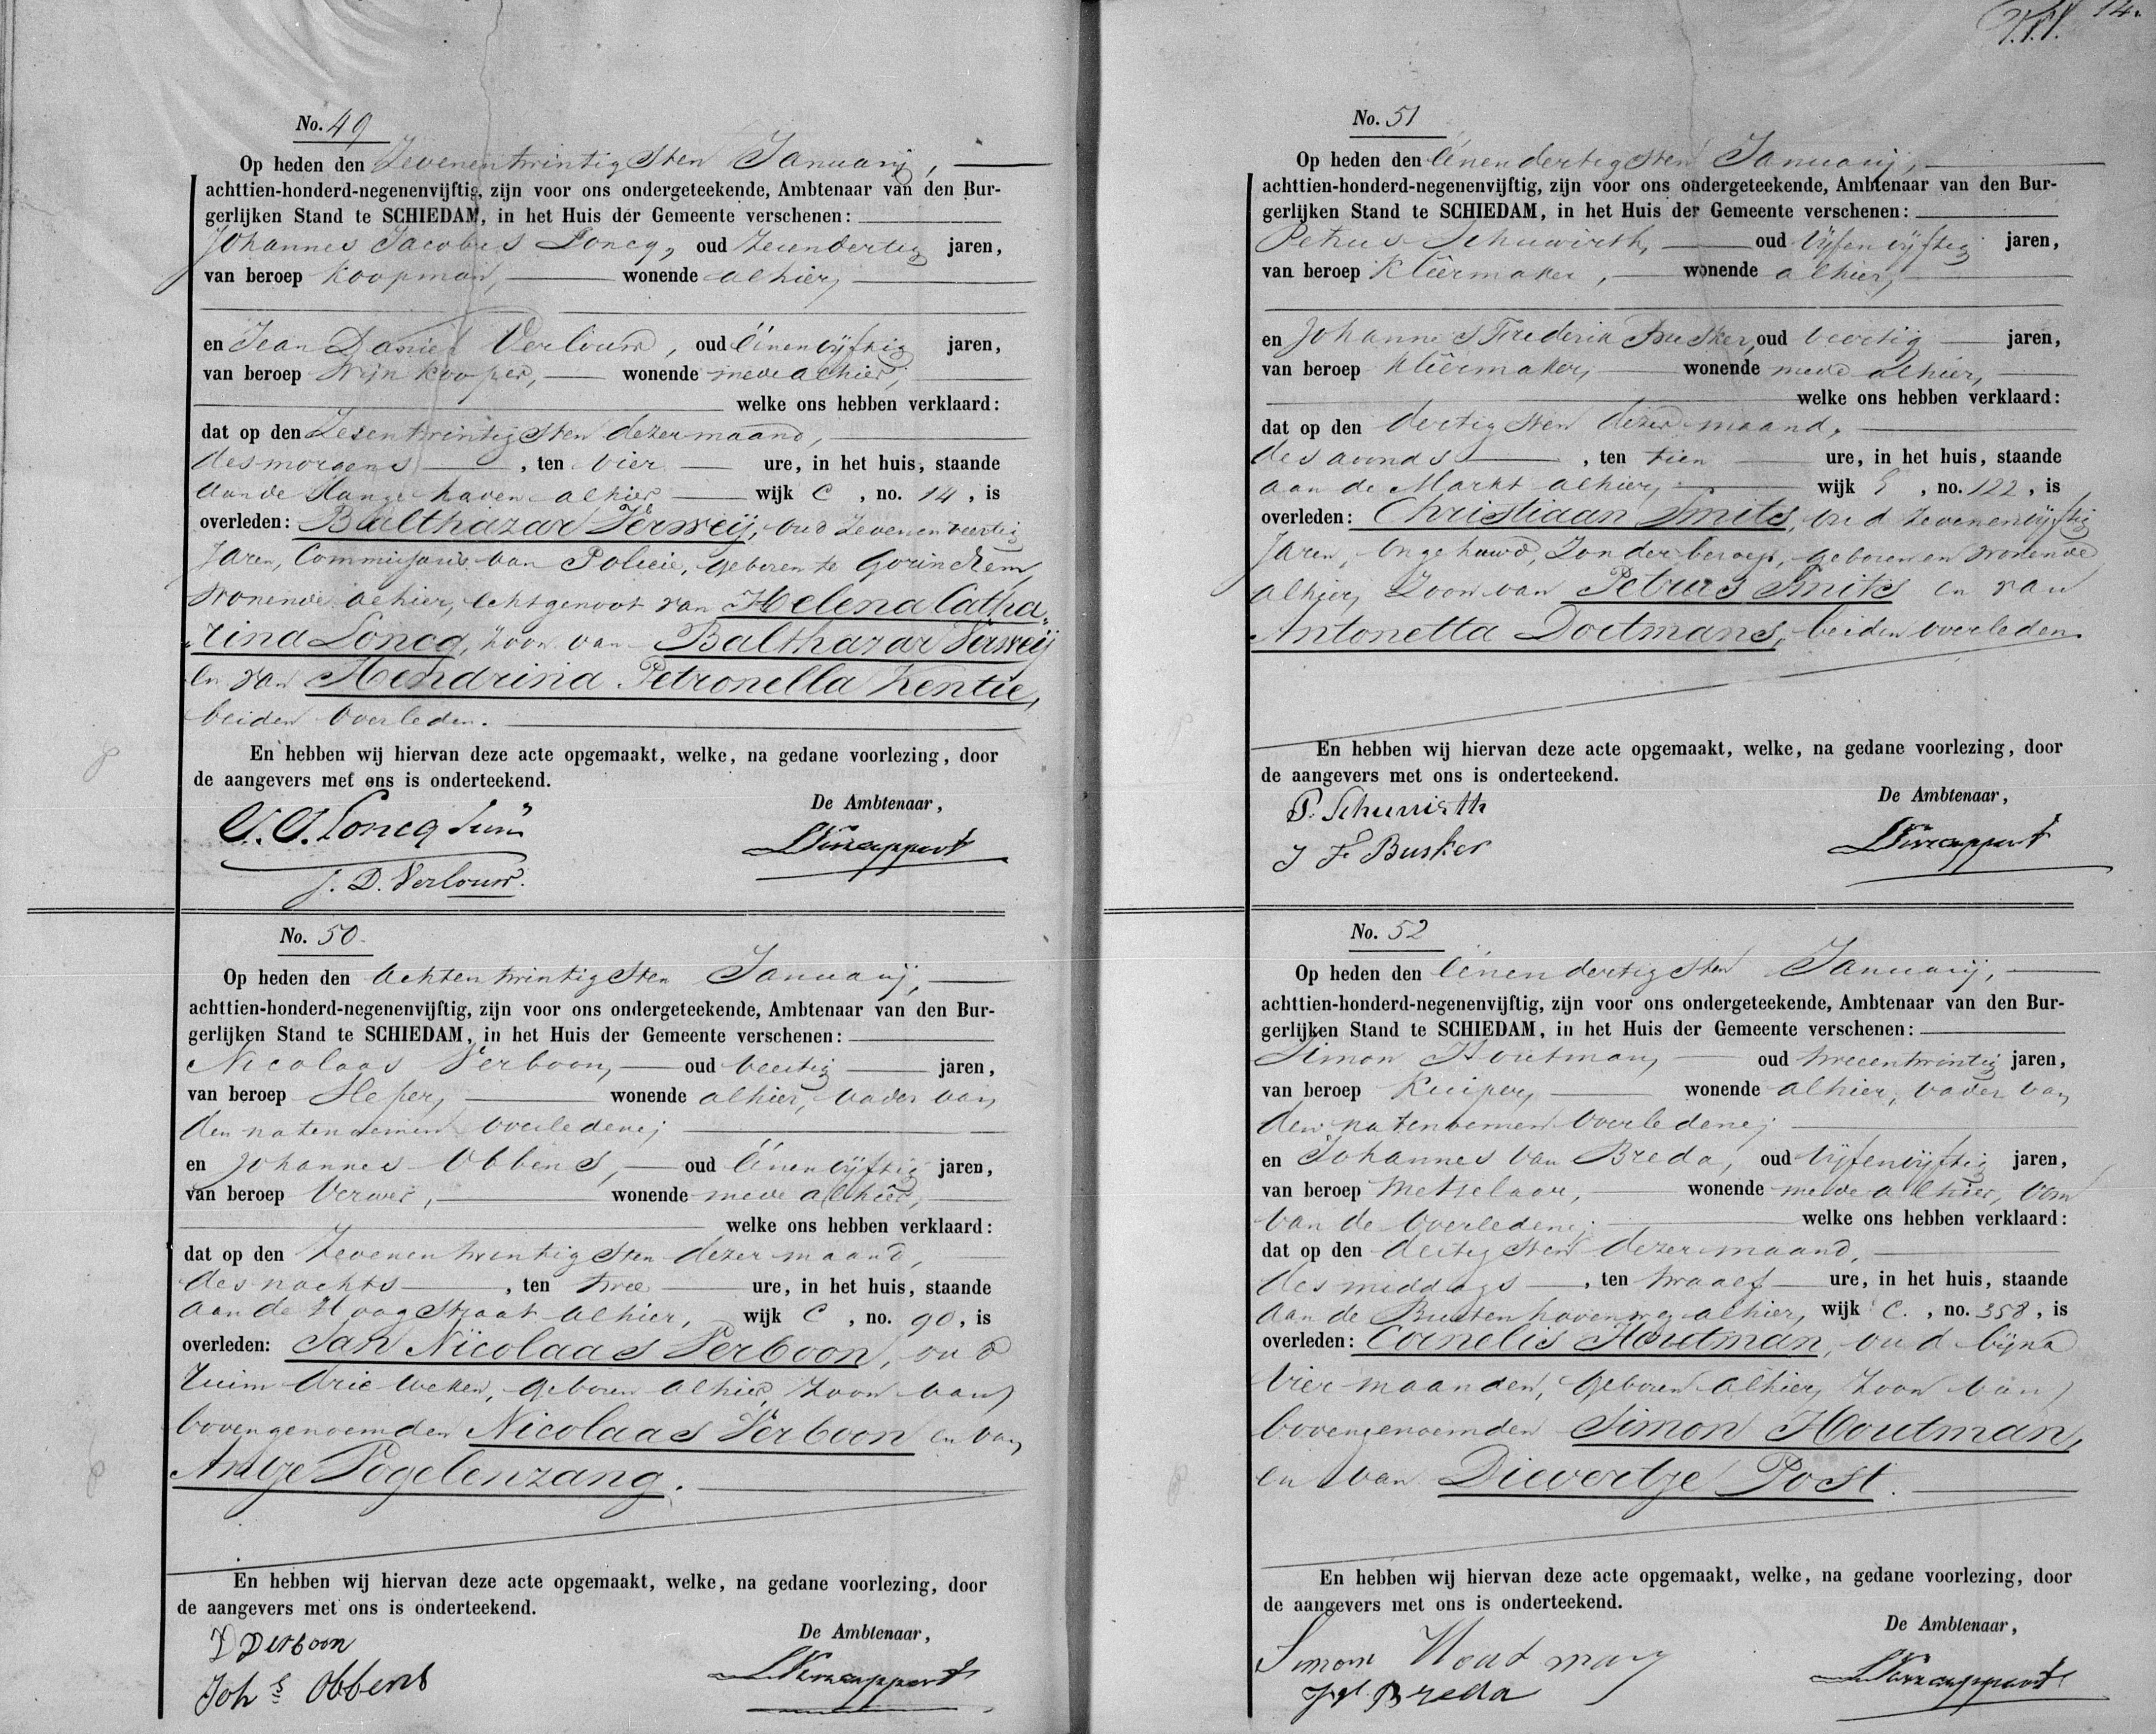 No. 49
Op heden den Zevenentwintigsten Januarij,
achttien-honderd-negenenvijftig, zijn voor ons ondergeteekende, Ambtenaar van den Bur-
gerlijken Stand te SCHIEDAM, in het Huis der Gemeente verschenen:
Johannes Jacobus Loncq, oud jaren,
van beroep Koopman, wonende alhier,
en Jean Daniel Verlouw, oud éénenvijftig jaren,
van beroep Wijnkooper, wonende mede alhier,
welke ons hebben verklaard:
dat op den Zesentwintigsten dezer maand,
des morgens, ten vier ure, in het huis, staande
aan de Lange haven alhier wijk C, no. 14, is
overleden: Balthazar Verweij, oud zevenenveertig
Jaren, Commissaris van Policie, geboren te Gorinchem,
wonende alhier, echtgenoot van Helena Catha„
„rina Loncq, zoon van Balthazar Verweij
en van Hendrina Petronella Kentie,
beiden overleden.
En hebben wij hiervan deze acte opgemaakt, welke, na gedane voorlezing, door
de aangevers met ons is onderteekend.
De Ambtenaar,
J. J. Loncq Jun
J. D. Verlouw.
No. 50.
Op heden den Achtentwintigsten Januarij,
achttien-honderd-negenenvijftig, zijn voor ons ondergeteekende, Ambtenaar van den Bur-
gerlijken Stand te SCHIEDAM, in het Huis der Gemeente verschenen:
Nicolaas Verboon, oud veertig jaren,
van beroep Sleper, wonende alhier, vader van
den natenoemen overledene;
en Johannes Obbens, oud éénenvijftig jaren,
van beroep Verwer, wonende mede alhier,
welke ons hebben verklaard:
dat op den Zevenentwintigsten dezer maand,
des nachts, ten twee ure, in het huis, staande
aan de Hoogstraat alhier, wijk C, no. 90, is
overleden: Jan Nicolaas Verboon, oud
ruim drie weken, geboren alhier, zoon van
bovengenoemden Nicolaas Verboon en van
Antje Vogelenzang.
En hebben wij hiervan deze acte opgemaakt, welke, na gedane voorlezing, door
de aangevers met ons is onderteekend.
De Ambtenaar,
Verboon
Joh s Obbens
14.
No. 51
Op heden den éénendertigsten Januarij,
achttien-honderd-negenenvijftig, zijn voor ons ondergeteekende, Ambtenaar van den Bur-
gerlijken Stand te SCHIEDAM, in het Huis der Gemeente verschenen:
Petrus Schuwirth, oud vijfenvijftig jaren,
van beroep Kleêrmaker, wonende alhier,
en Johannes Frederik Busker, oud veertig jaren,
van beroep Kleêrmaker, wonende mede alhier,
welke ons hebben verklaard:
dat op den dertigsten dezer maand,
des avonds, ten tien ure, in het huis, staande
aan de Markt alhier, wijk, no. 122, is
overleden: Christiaan Smits, oud zevenenvijftig
Jaren, ongehuwd, zonder beroep, geboren en wonende
alhier, zoon van Petrus Smits en van
Antonetta Doetmans, beiden overleden.
En hebben wij hiervan deze acte opgemaakt, welke, na gedane voorlezing, door
de aangevers met ons is onderteekend.
De Ambtenaar,
P. Schuwirth
J F Busker
No. 52
Op heden den éénendertigsten Januarij,
achttien-honderd-negenenvijftig, zijn voor ons ondergeteekende, Ambtenaar van den Bur-
gerlijken Stand te SCHIEDAM, in het Huis der Gemeente verschenen:
Simon Houtman, oud tweeentwintig jaren,
van beroep Kuiper, wonende alhier, vader van
den natenoemen overledene;
en Johannes van Breda, oud vijfenvijftig jaren,
van beroep Metselaar, wonende mede alhier, oom
van de overledene; welke ons hebben verklaard:
dat op den dertigsten dezer maand,
des middags, ten twaalf ure, in het huis, staande
aan de Buitenhavenweg alhier, wijk C., no. 358, is
overleden: Cornelis Houtman, oud bijna
vier maanden, geboren alhier, zoon van
bovengenoemden Simon Houtman,
en van Dievertje Post.
En hebben wij hiervan deze acte opgemaakt, welke, na gedane voorlezing, door
de aangevers met ons is onderteekend.
De Ambtenaar,
Simon Houtman
Breda